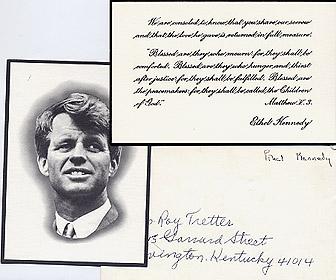 We are consoled to know that you share our sorrow
and that the love he gave is returned in full measure.
"Blessed are they who mourn for they shall be
comforted. Blessed are they who hunger and thirst
after justice for they shall be fulfilled. Blessed are
the peacemakers for they shall be called the Children
of God."
Matthew V. 3.
Ethel Kennedy
Ethel Kennedy
Roy Tretter
Garrard Street
Kentucky 41014